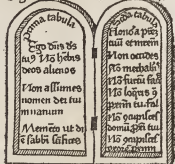 Prima tabula
Ego dūs dē
tuꝰ Nō hēbis
deos alienos
Non assumes
nomen dei tui
in uanum
Memēto ut di
ē sabbi scīfices
Scda tabula
Honora p̄rez
tuū et mrem
Non occides
Nō mechab̄
Nō furtū fac̄
Nō loq̄ris ꝯ
prīm tu. fal.
Nō ꝯcupisces
domū prīm tu
Nō ꝯcupisces